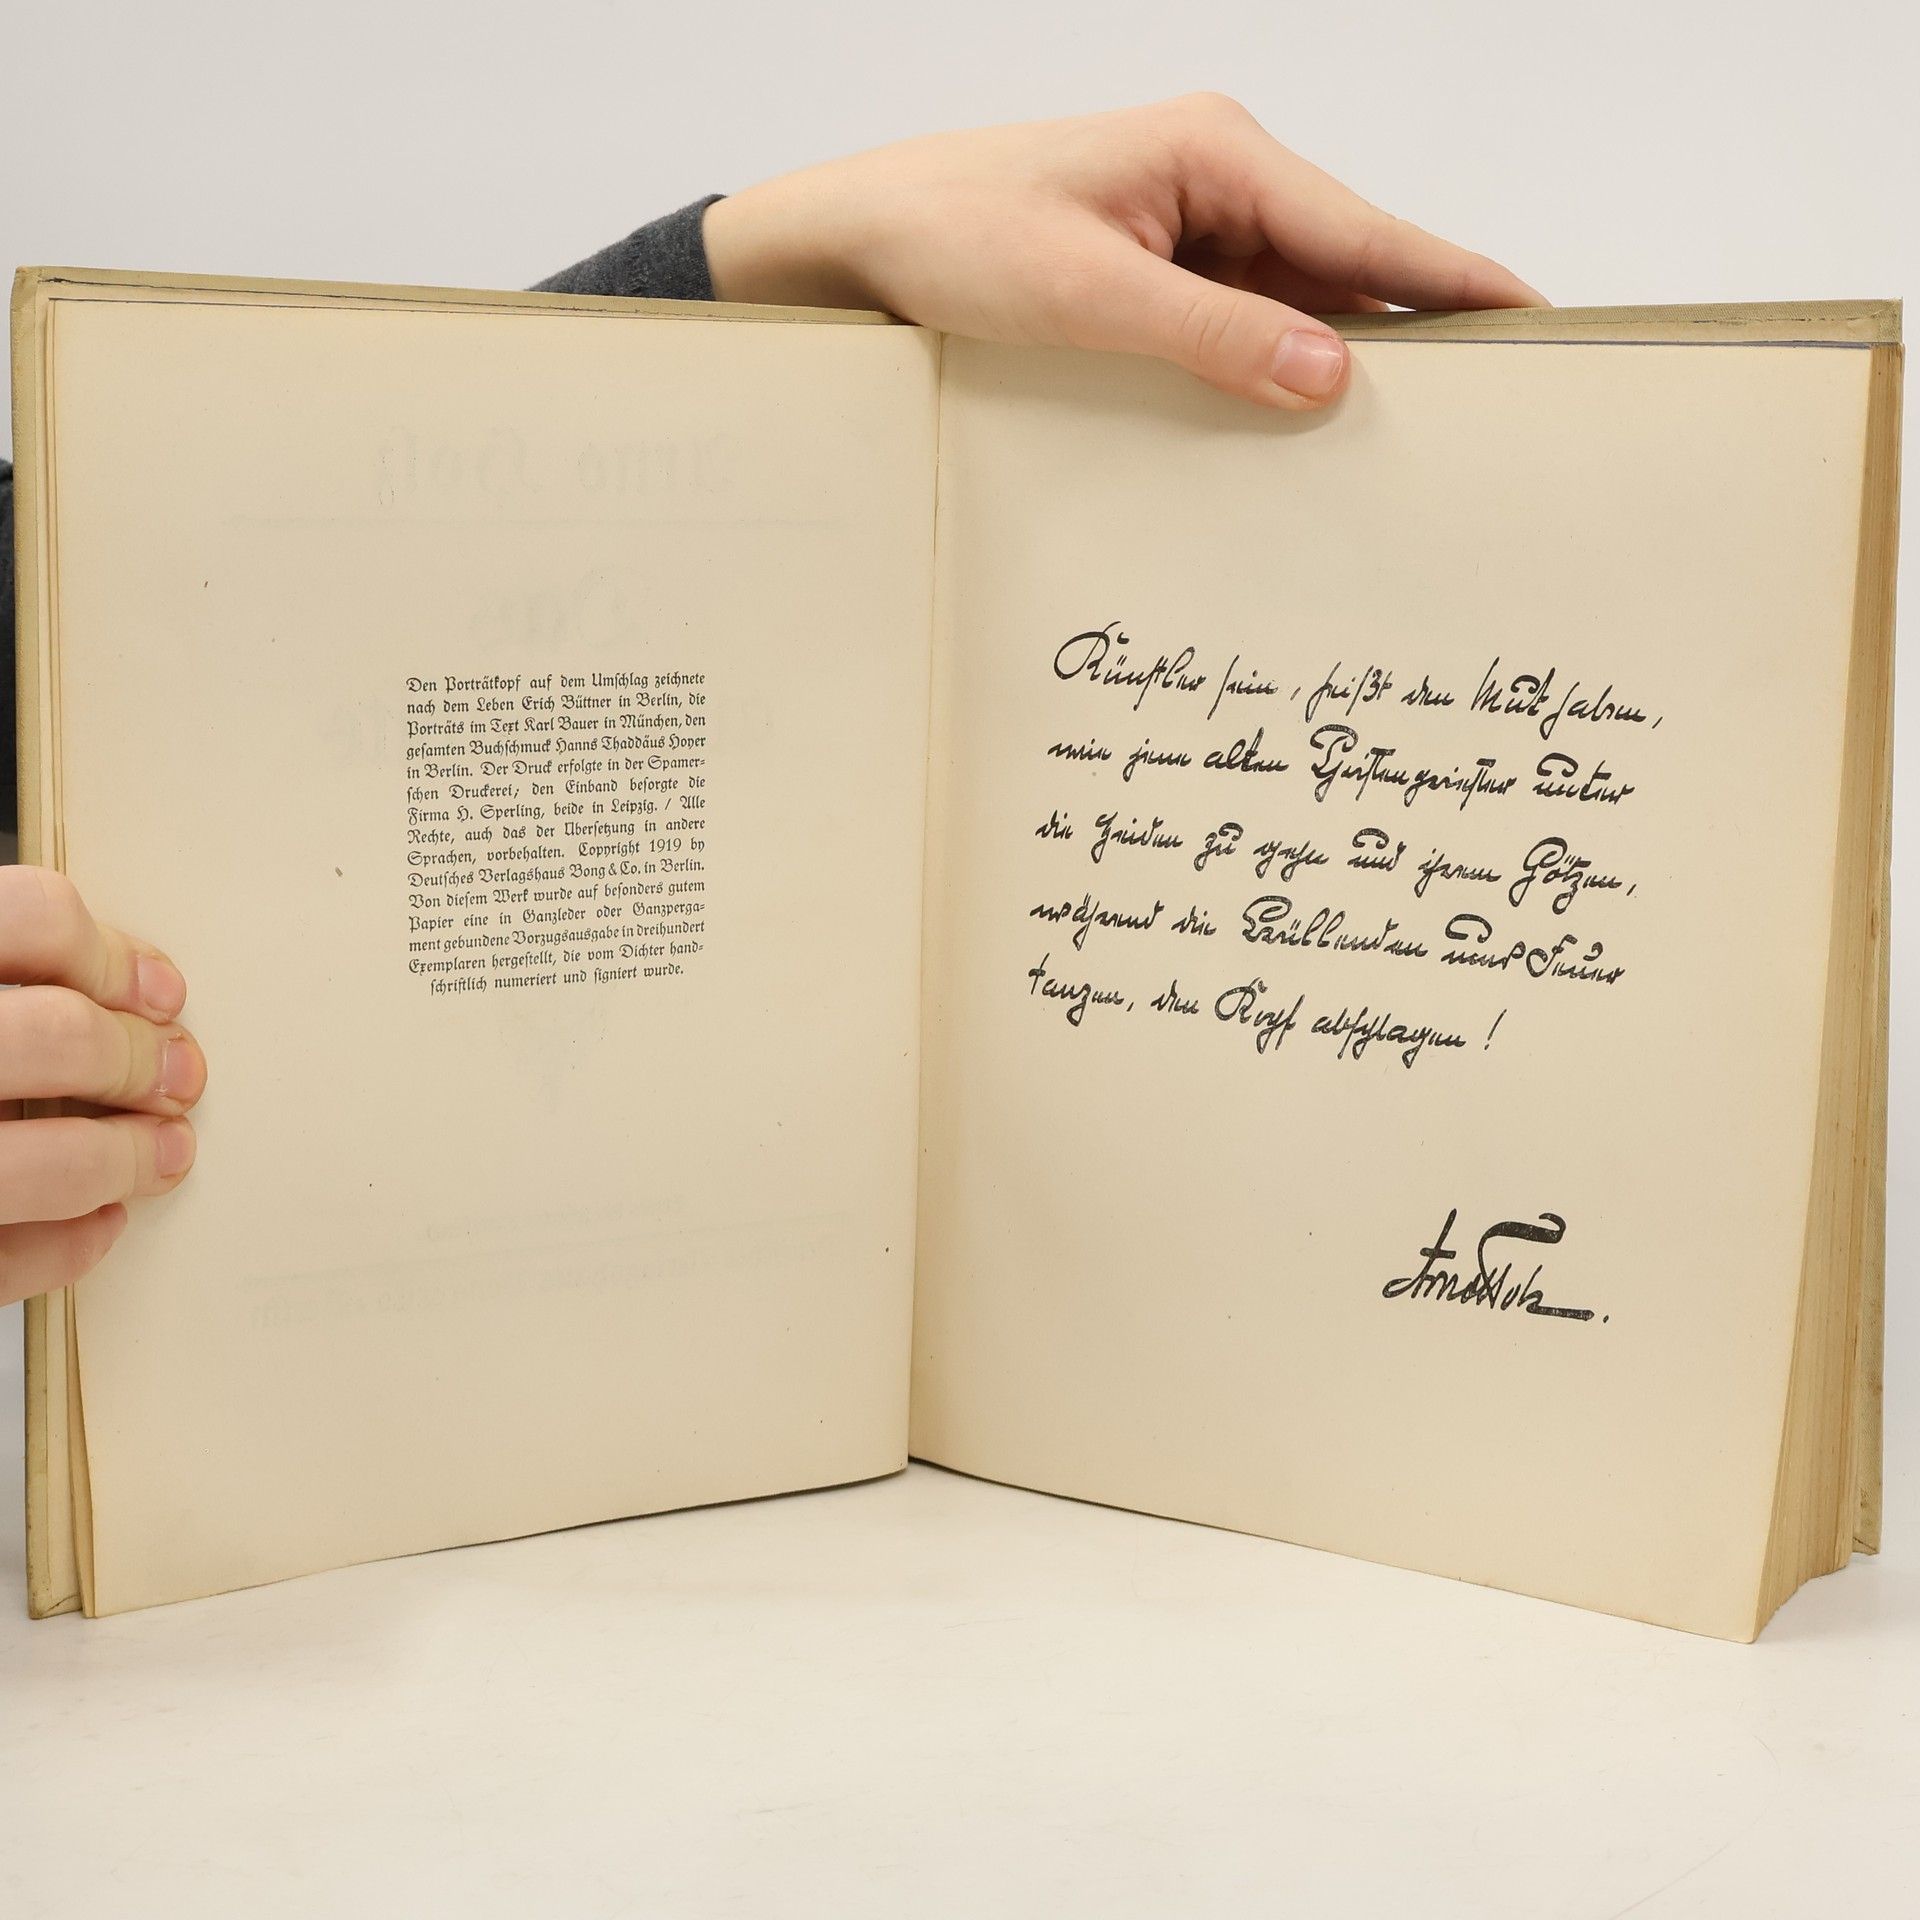 Den Porträtkopf auf dem Umschlag zeichnete
nach dem Leben Erich Büttner in Berlin, die
Porträts im Text Karl Bauer in München, den
gesamten Buchschmuck Hanns Thaddäus Hoyer
in Berlin. Der Druck erfolgte in der Spamer-
schen Druckerei; den Einband besorgte die
Firma H. Sperling, beide in Leipzig. / Alle
Rechte, auch das der Übersetzung in andere
Sprachen, vorbehalten. Copyright 1919 by
Deutsches Verlagshaus Bong & Co. in Berlin.
Von diesem Werk wurde auf besonders gutem
Papier eine in Ganzleder oder Ganzperga-
ment gebundene Vorzugsausgabe in dreihundert
Exemplaren hergestellt, die vom Dichter hand-
schriftlich numeriert und signiert wurde.
Künstler sein, heißt den Mut haben,
wie jene alten Christenpriester unter
die Heiden zu gehn und ihren Götzen,
während die Brüllenden ums Feuer
tanzen, den Kopf abschlagen!
Arno Holz.